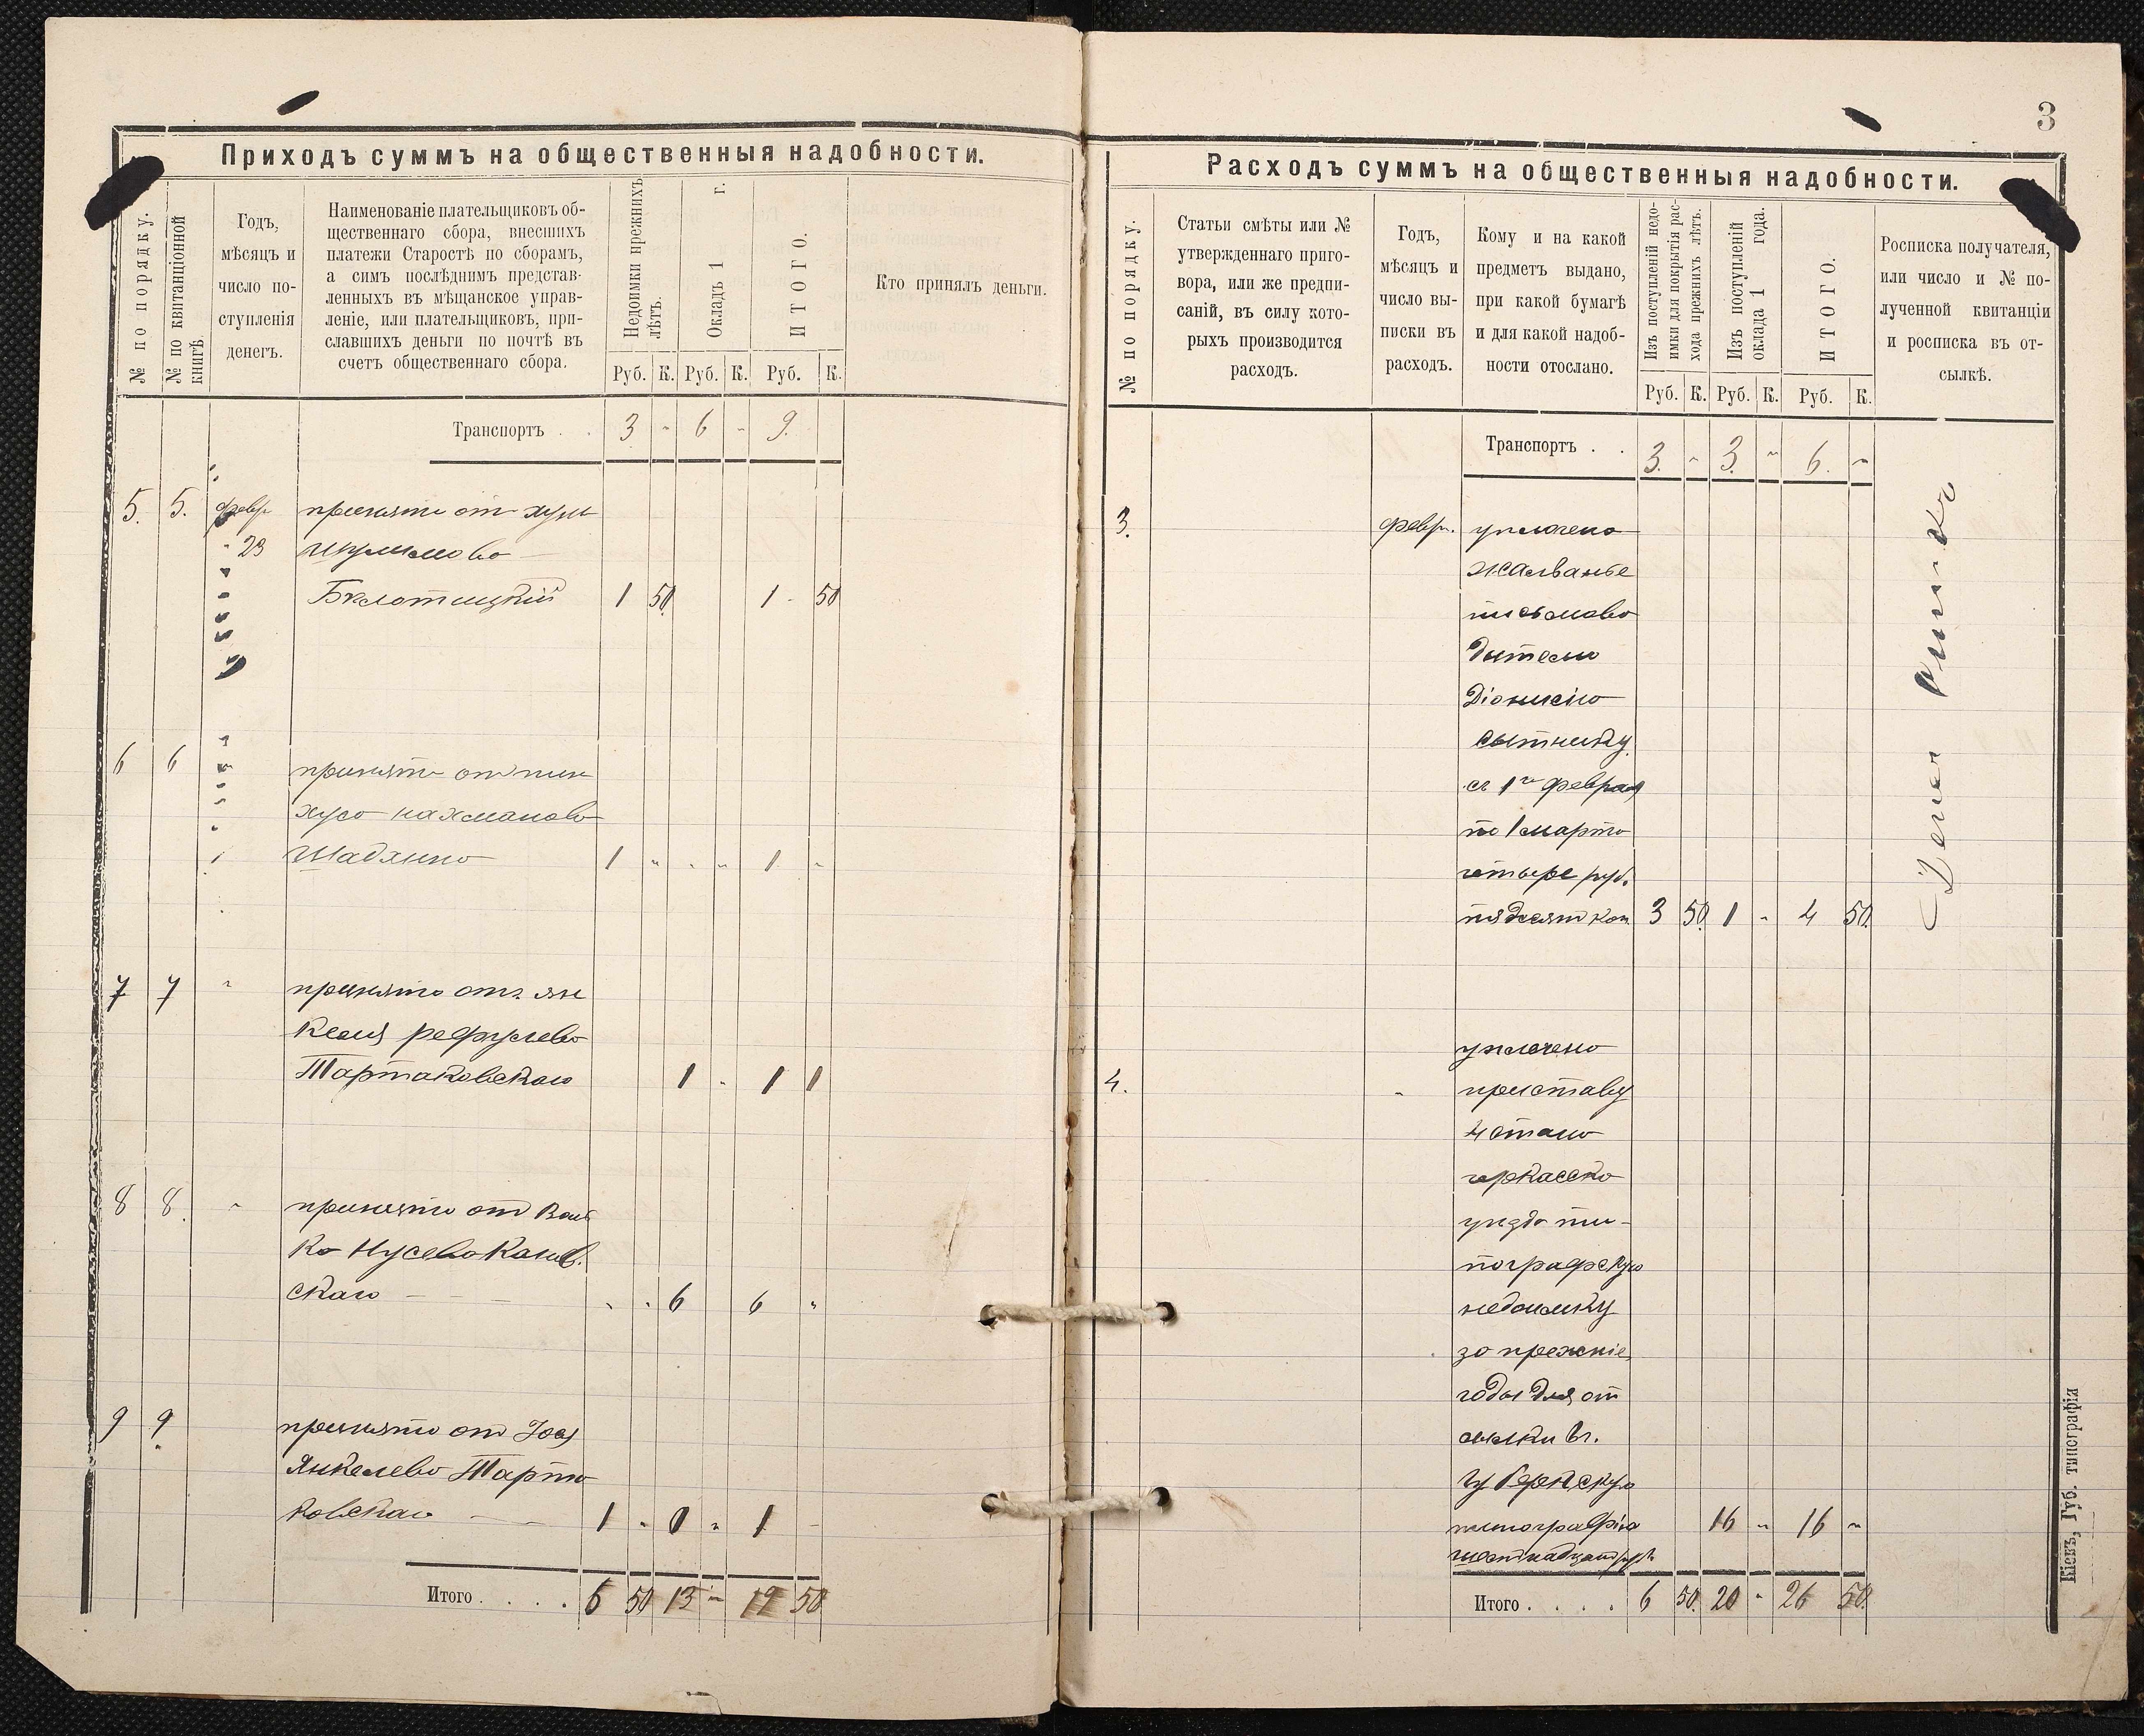 3
Приходъ суммъ на общественныя надобности.
№ по порядку.
№ по квитанціонной
книгѣ.
Годъ,
мѣсяцъ и
число по-
ступленія
денегъ.
Наименованіе плательщиковъ об-
щественнаго сбора, внесшихъ
платежи Старостѣ по сборамъ,
а симъ послѣднимъ представ-
ленныхъ въ мѣщанское управ-
леніе, или плательщиковъ, при-
славшихъ деньги по почтѣ въ
счетъ общественнаго сбора.
Недоимки прежнихъ
лѣтъ.
Окладъ 1 г.
ИТОГО.
Кто принялъ деньги.
Руб. К. Руб. К. Руб. К.
Транспортъ . . 3 " 6 " 9.
5. 5. февр принято от
23
1 50 1 50
6 6 принято от пин
хуса нахманова
1 " " " 1 "
7 7 " принято отъ ян
келя рефулева
Тартаковскаго 1 " 1
8 8. " принято от
ко Нусева Канев.
скаго " " 6 6 "
9 9. принято от
Янкелева Тарта
ковскаго 1 " 0 " 1
Итого . . . . 6 50 13 " 19 50
Расходъ суммъ на общественныя надобности.
№ по порядку.
Статьи смѣты или №
утвержденнаго приго-
вора, или же предпи-
саній, въ силу кото-
рыхъ производится
расходъ.
Годъ,
мѣсяцъ и
число вы-
писки въ
расходъ.
Кому и на какой
предметъ выдано,
при какой бумагѣ
и для какой надоб-
ности отослано.
Изъ поступленій недо-
имки для покрытія рас-
хода прежнихъ лѣтъ.
Изъ поступленій
оклада 1 года.
ИТОГО.
Росписка получателя,
или число и № по-
лученной квитанціи
и росписка въ от-
сылкѣ.
Руб. К. Руб. К. Руб. К.
Транспортъ . . 3. " 3. " 6. "
3. февр. уплочено
жалванье
письмово
дителю
Діонисію
сытнику
съ 1го феврал
по 1 марта
четыре руб.
пядесят коп. 3 50 1 " 4 50.
уплочено
4. " приставу
4 стана
черкасско
уезда ти-
пографскую
недоимку
за прежніе
годы для от
сылки въ
губернскую
типографію 16 " 16 "
шестнадцат руб
Итого . . . . 6 50. 20 " 26 50.
Кіевъ, Губ. типографія